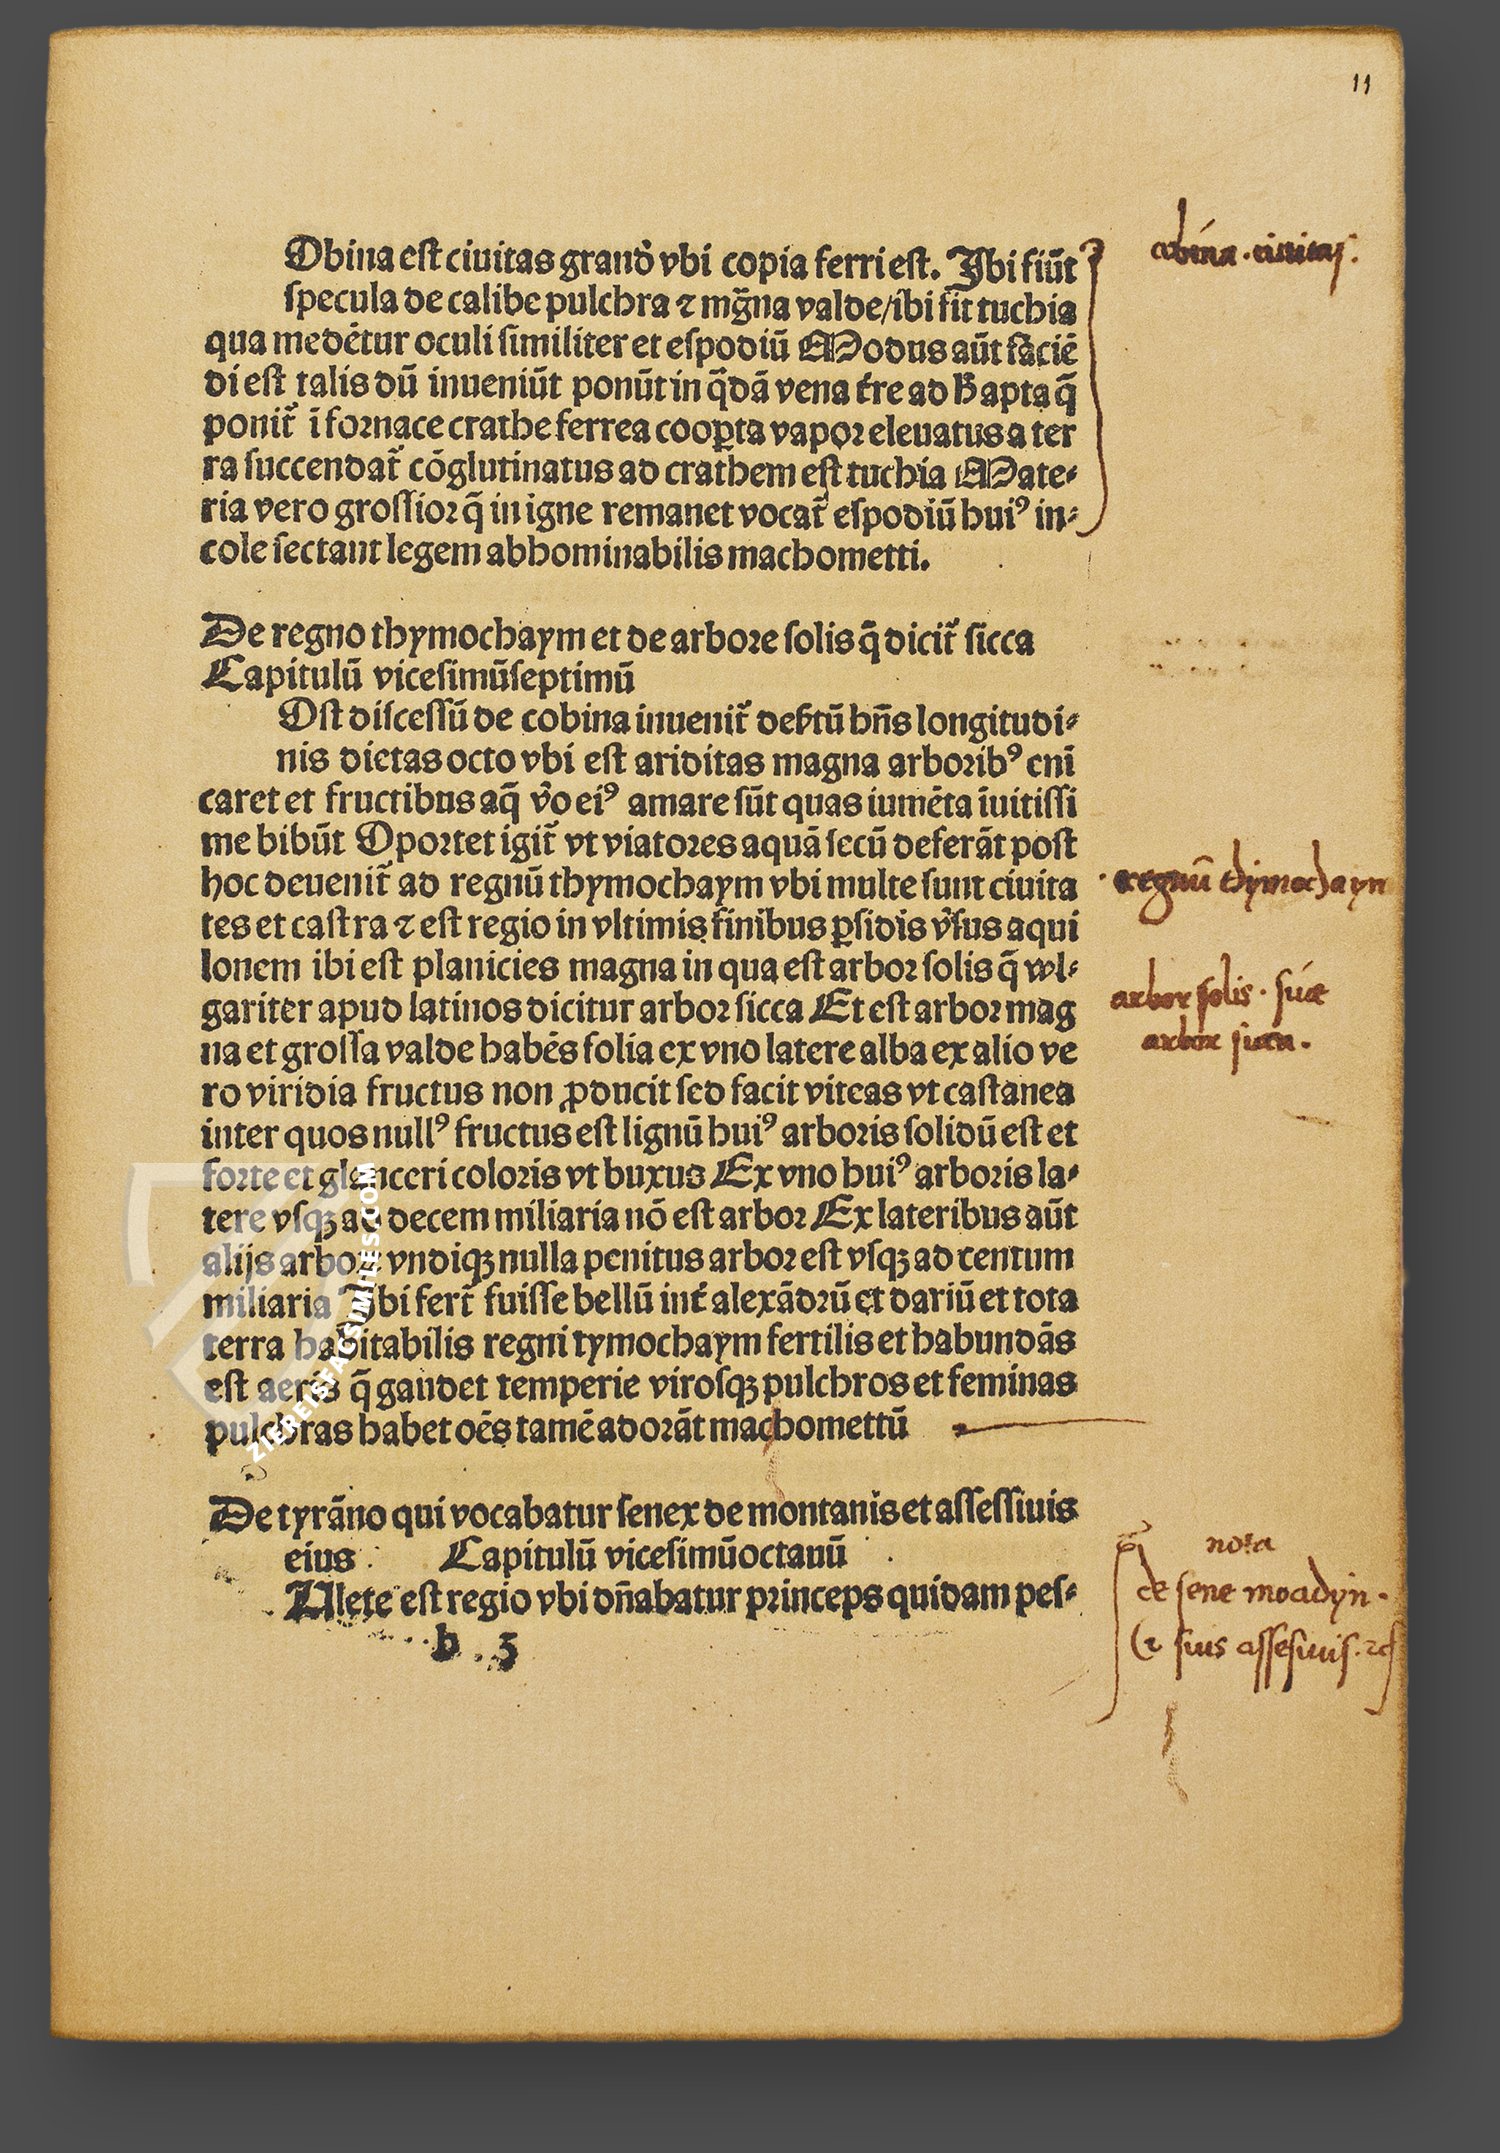 11
Obina est ciuitas grandꝰ vbi copia ferri est. Ibi fiūt
cobina · ciuitas ·
specula de calibe pulchra ⁊ mg̃na valde/ibi fit tuchia
qua medētur oculi similiter et espodiū Modus aūt faciē
di est talis dū inueniūt ponūt in q̄dā vena t́re ad h̄ apta q̄
ponit̄ ī fornace crathe ferrea cooꝑta vapor eleuatus a ter
ra succendat̄ cōglutinatus ad crathem est tuchia Mate⸗
ria vero grossior q̄ in igne remanet vocat̄ espodiū huiꝰ in⸗
cole sectant legem abhominabilis machometti.
De regno thymochaym et de arbore solis q̄ dicit̄ sicca
Capitulū vicesimūseptimū
Ost discessū de cobina inuenit̄ deẜtū hn̄s longitudi⸗
nis dietas octo vbi est ariditas magna arboribꝰ eni
caret et fructibus aq̄ v̄o eiꝰ amare sūt quas iumēta īuitissi
me bibūt Oportet igit̄ vt viatores aquā secū deferāt post
hoc deuenit̄ ad regnū thymochaym vbi multe sunt ciuita
regnū thymochayn
tes et castra ⁊ est regio in vltimis finibus ꝑsidis v̄sus aqui
lonem ibi est planicies magna in qua est arbor solis q̄ wl⸗
gariter apud latinos dicitur arbor sicca Et est arbor mag
arbor solis · siue
na et grossa valde habēs folia ex vno latere alba ex alio ve
arbor sicca ·
ro viridia fructus non ꝓducit sed facit viteas vt castanea
inter quos nullꝰ fructus est lignū huiꝰ arboris solidū est et
forte et glanceri coloris vt buxus Ex vno huiꝰ arboris la⸗
tere vsqꝫ ad decem miliaria nō est arbor Ex lateribus aūt
alijs arbore vndiqꝫ nulla penitus arbor est vsqꝫ ad centum
miliaria Ibi fert̄ fuisse bellū int́ alexādrū et dariū et tota
terra habitabilis regni tymochaym fertilis et habundās
est aeris q̄ gaudet temperie virosqꝫ pulchros et feminas
pulchras habet oēs tamē adorāt machomettū
De tyrāno qui vocabatur senex de montanis et assessiuis
eius Capitulū vicesimūoctauū
nota
Ulete est regio vbi dn̄abatur princeps quidam pes⸗
de sene moadyn ·
b . 3
⁊ suis assesiuis ·
ZIEREISFACSIMILES.COM